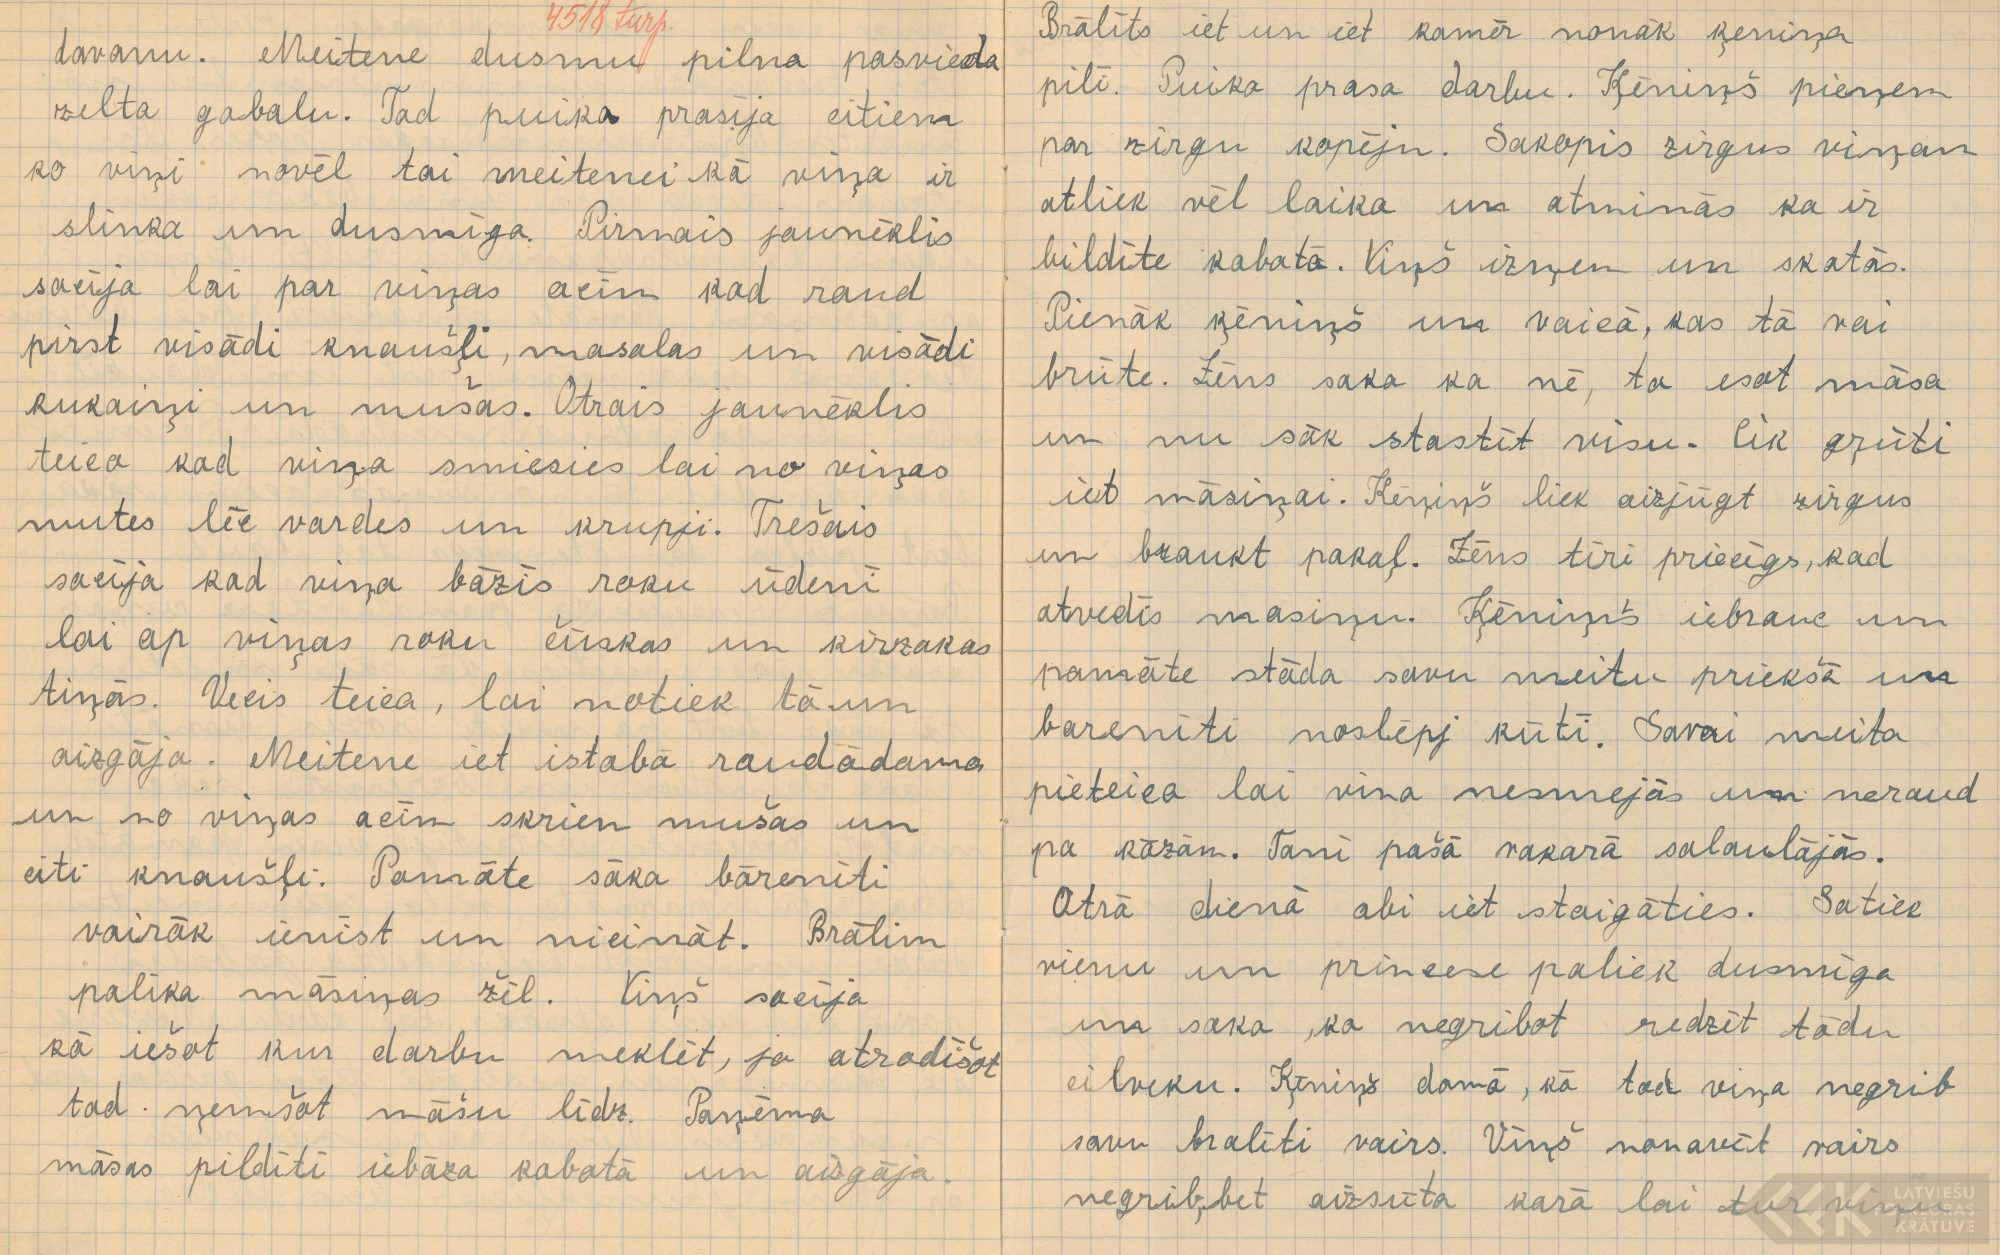 4518 turp.
davanu. Meitene dusmu pilna pasvieda
zelta gabalu. Tad puika prasija citiem
ko viņi novēl tai meitenei kā viņa ir
slinka un dusmīga. Pirmais jauneklis
sacīja lai par viņas acīm kad raud
pirst visādi knaušļi, masalas un visādi
kukaiņi un mušas. Otrais jauneklis
teica kad viņa smiesies lai no viņas
mutes lēc vardes un krupji. Trešais
sacīja kad viņa bāzīs roku ūdenī
lai ap viņas roku čūskas un ķirzakas
tinās. Vecis teica, lai notiek tā un
aizgāja. Meitene iet istabā raudādama
un no viņas acīm skrien mušas un
citi knaušļi. Pamāte sāka bārenīti
vairāk ienīst un nicināt. Brālim
palika māsiņas žēl. Viņš sacīja
kā iešot kur darbu meklēt, ja atradīšot
tad ņemšot māsu līdz. Paņēma
māsas pildīti iebāza kabatā un aizgāja.
Brālīts iet un iet kamēr nonāk ķeniņa
pilī. Puika prasa darbu. Ķēniņš pieņem
par zirgu kopēju. Sakopis zirgus viņam
atliek vēl laika un atminās ka ir
bildīte kabatā. Viņš izņem un skatās.
Pienāk ķēniņš un vaicā, kas tā vai
brūte. Zēns saka ka nē, ta esot māsa
un nu sāk stastīt visu. Cik grūti
iet māsiņai. Ķēniņš liek aizjūgt zirgus
un braukt pakaļ. Zēns tīri priecīgs, kad
atvedīs masiņu. Ķēniņš iebrauc un
pamāte stāda savu meitu priekšā un
barenīti noslēpj kūtī. Savai meita
pieteica lai vina nesmejās un neraud
pa kāzām. Tanī pašā vakarā salaulājās.
Otrā dienā abi iet staigāties. Satiek
vienu un princese paliek dusmīga
un saka, ka negribot redzēt tādu
cilveku. Ķēniņš domā, kā tad viņa negrib
savu bralīti vairs. Viņš nonavēt vairs
negrib, bet aizsūta karā lai tur viņu
LATVIEŠU
FOLKLORAS
KRĀTUVE